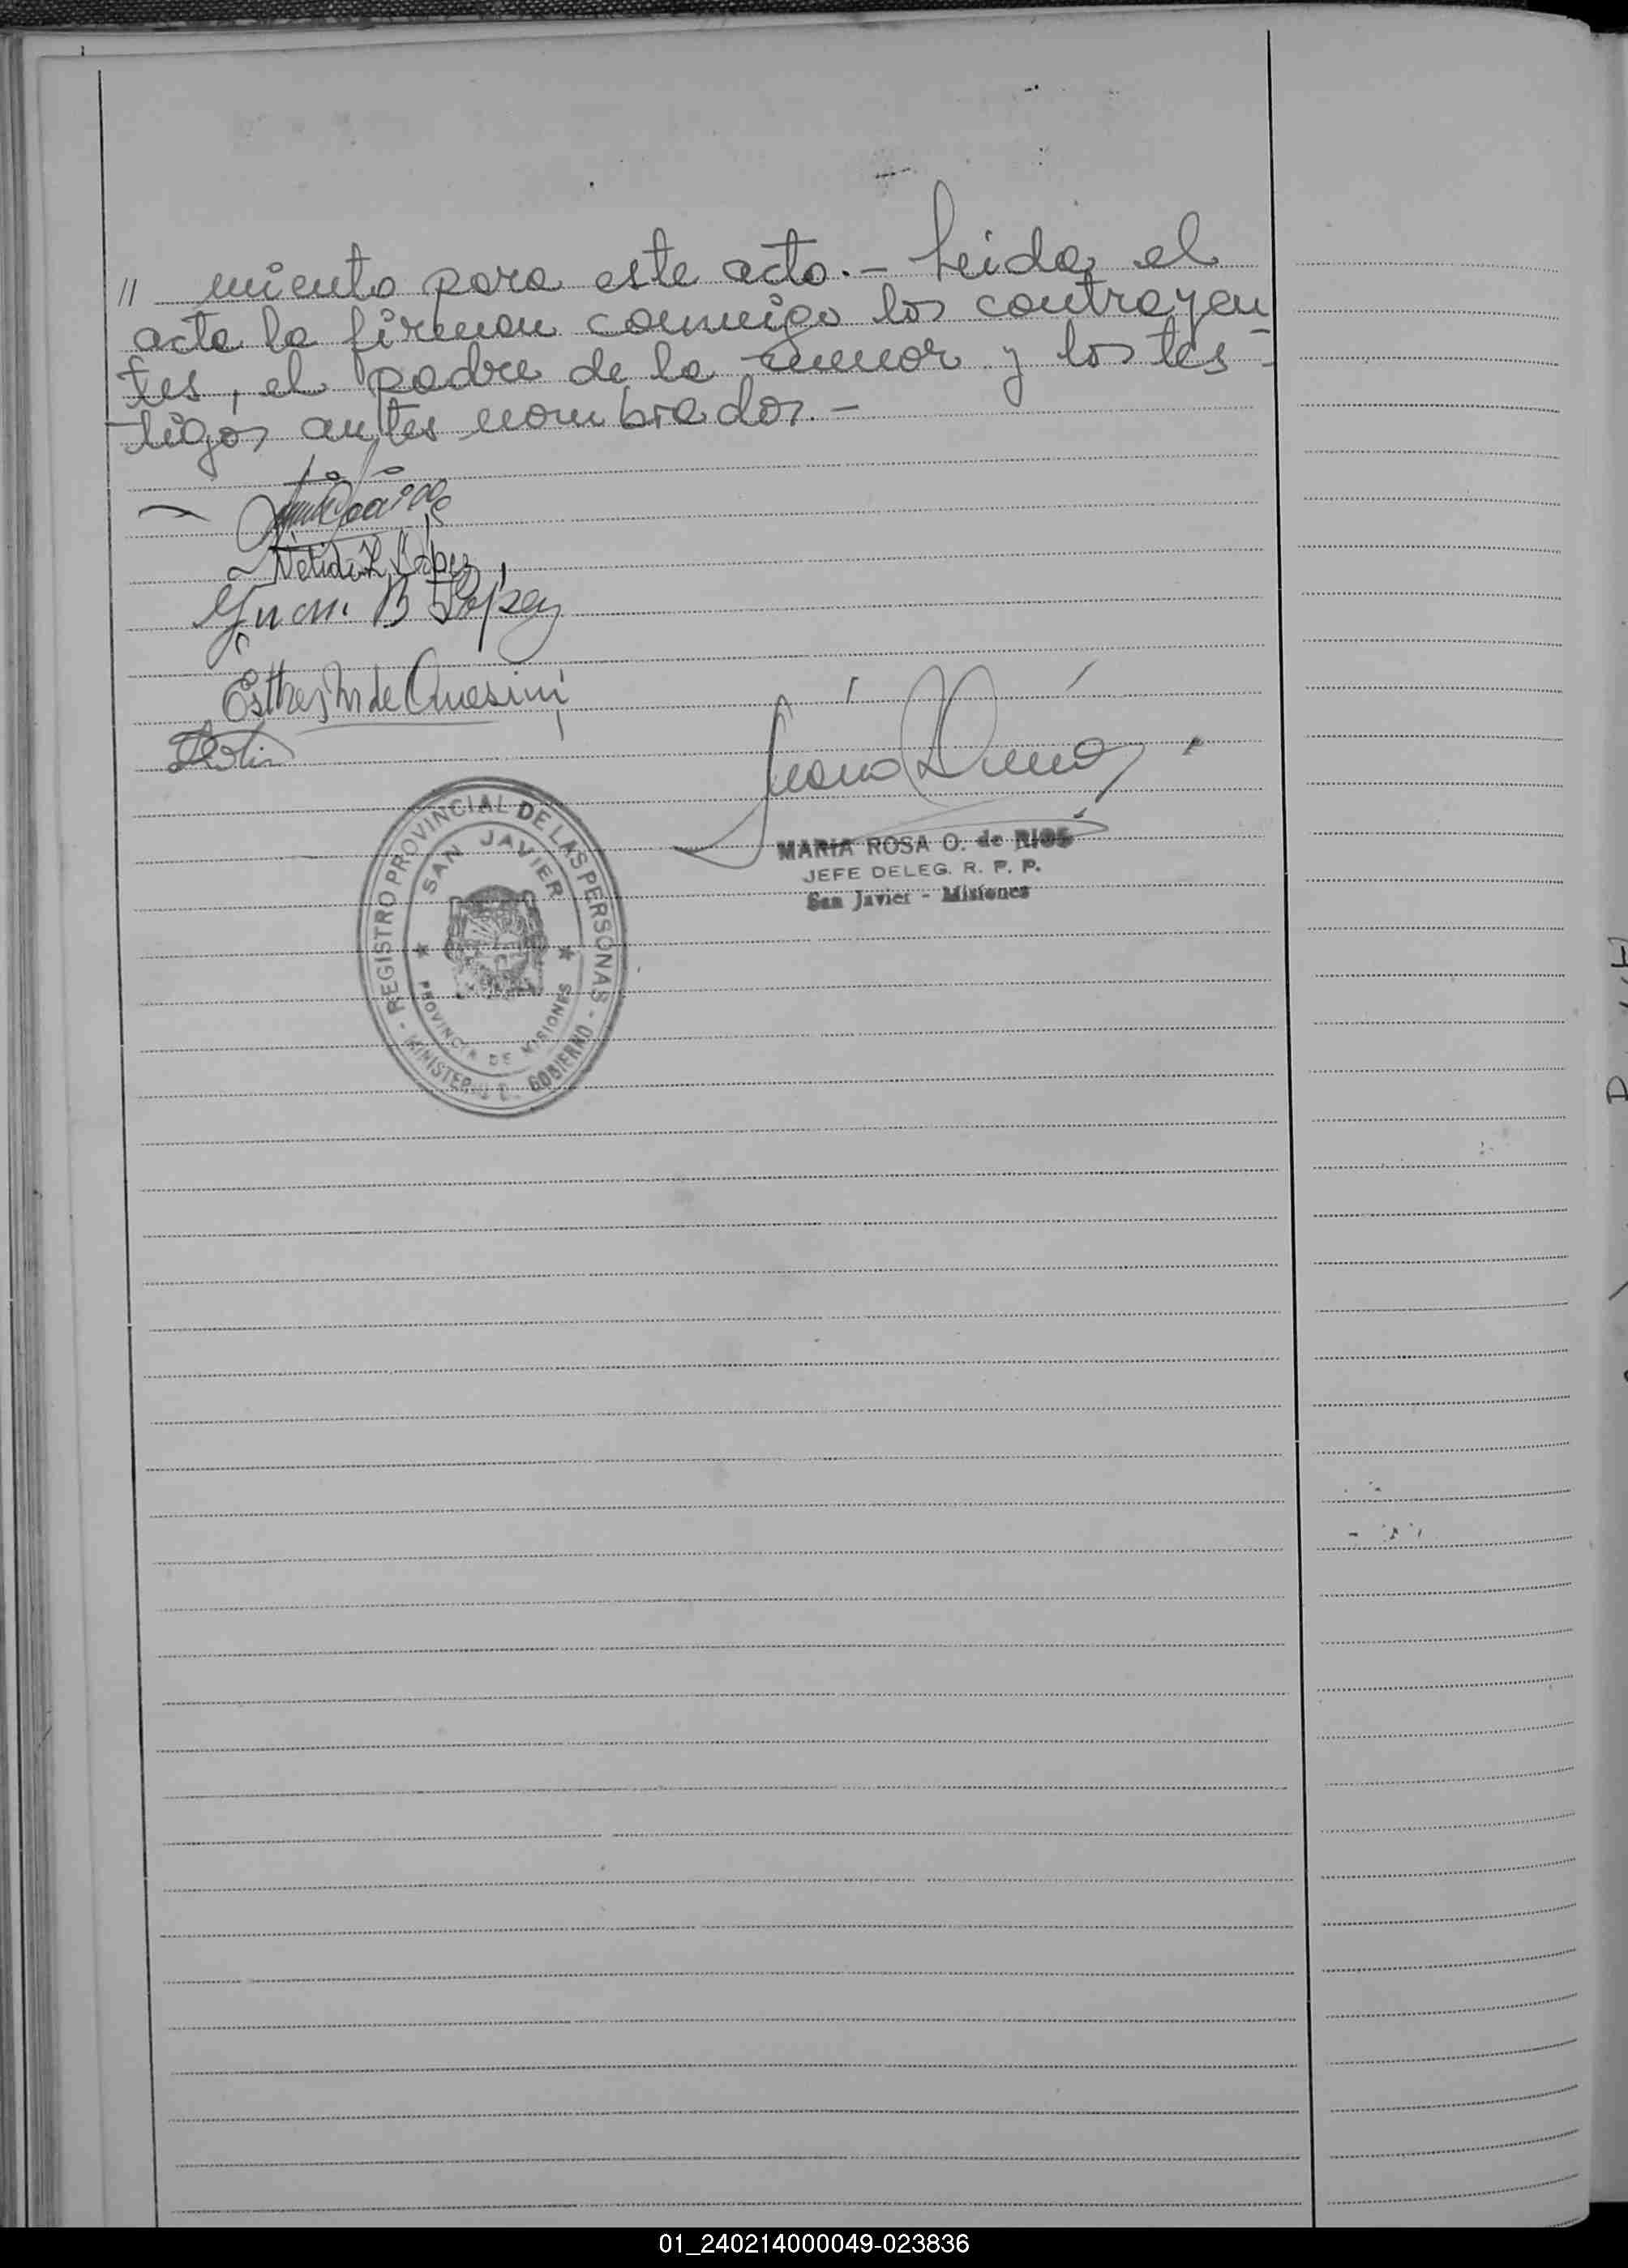 " miento para este acto.- Leida el
acta la firman conmigo los contrayen
tes, el padre de la menor y los tes-
tigos antes nombrados.-
Nelida L López
Juan B López
Esther M de
MARIA ROSA O. de RIOS
JEFE DELEG. R. P. P.
San Javier - Misiones
- REGISTRO PROVINCIAL DE LAS PERSONAS -
SAN JAVIER
PROVINCIA DE MISIONES
MINISTERIO D. GOBIERNO
01_240214000049-023836